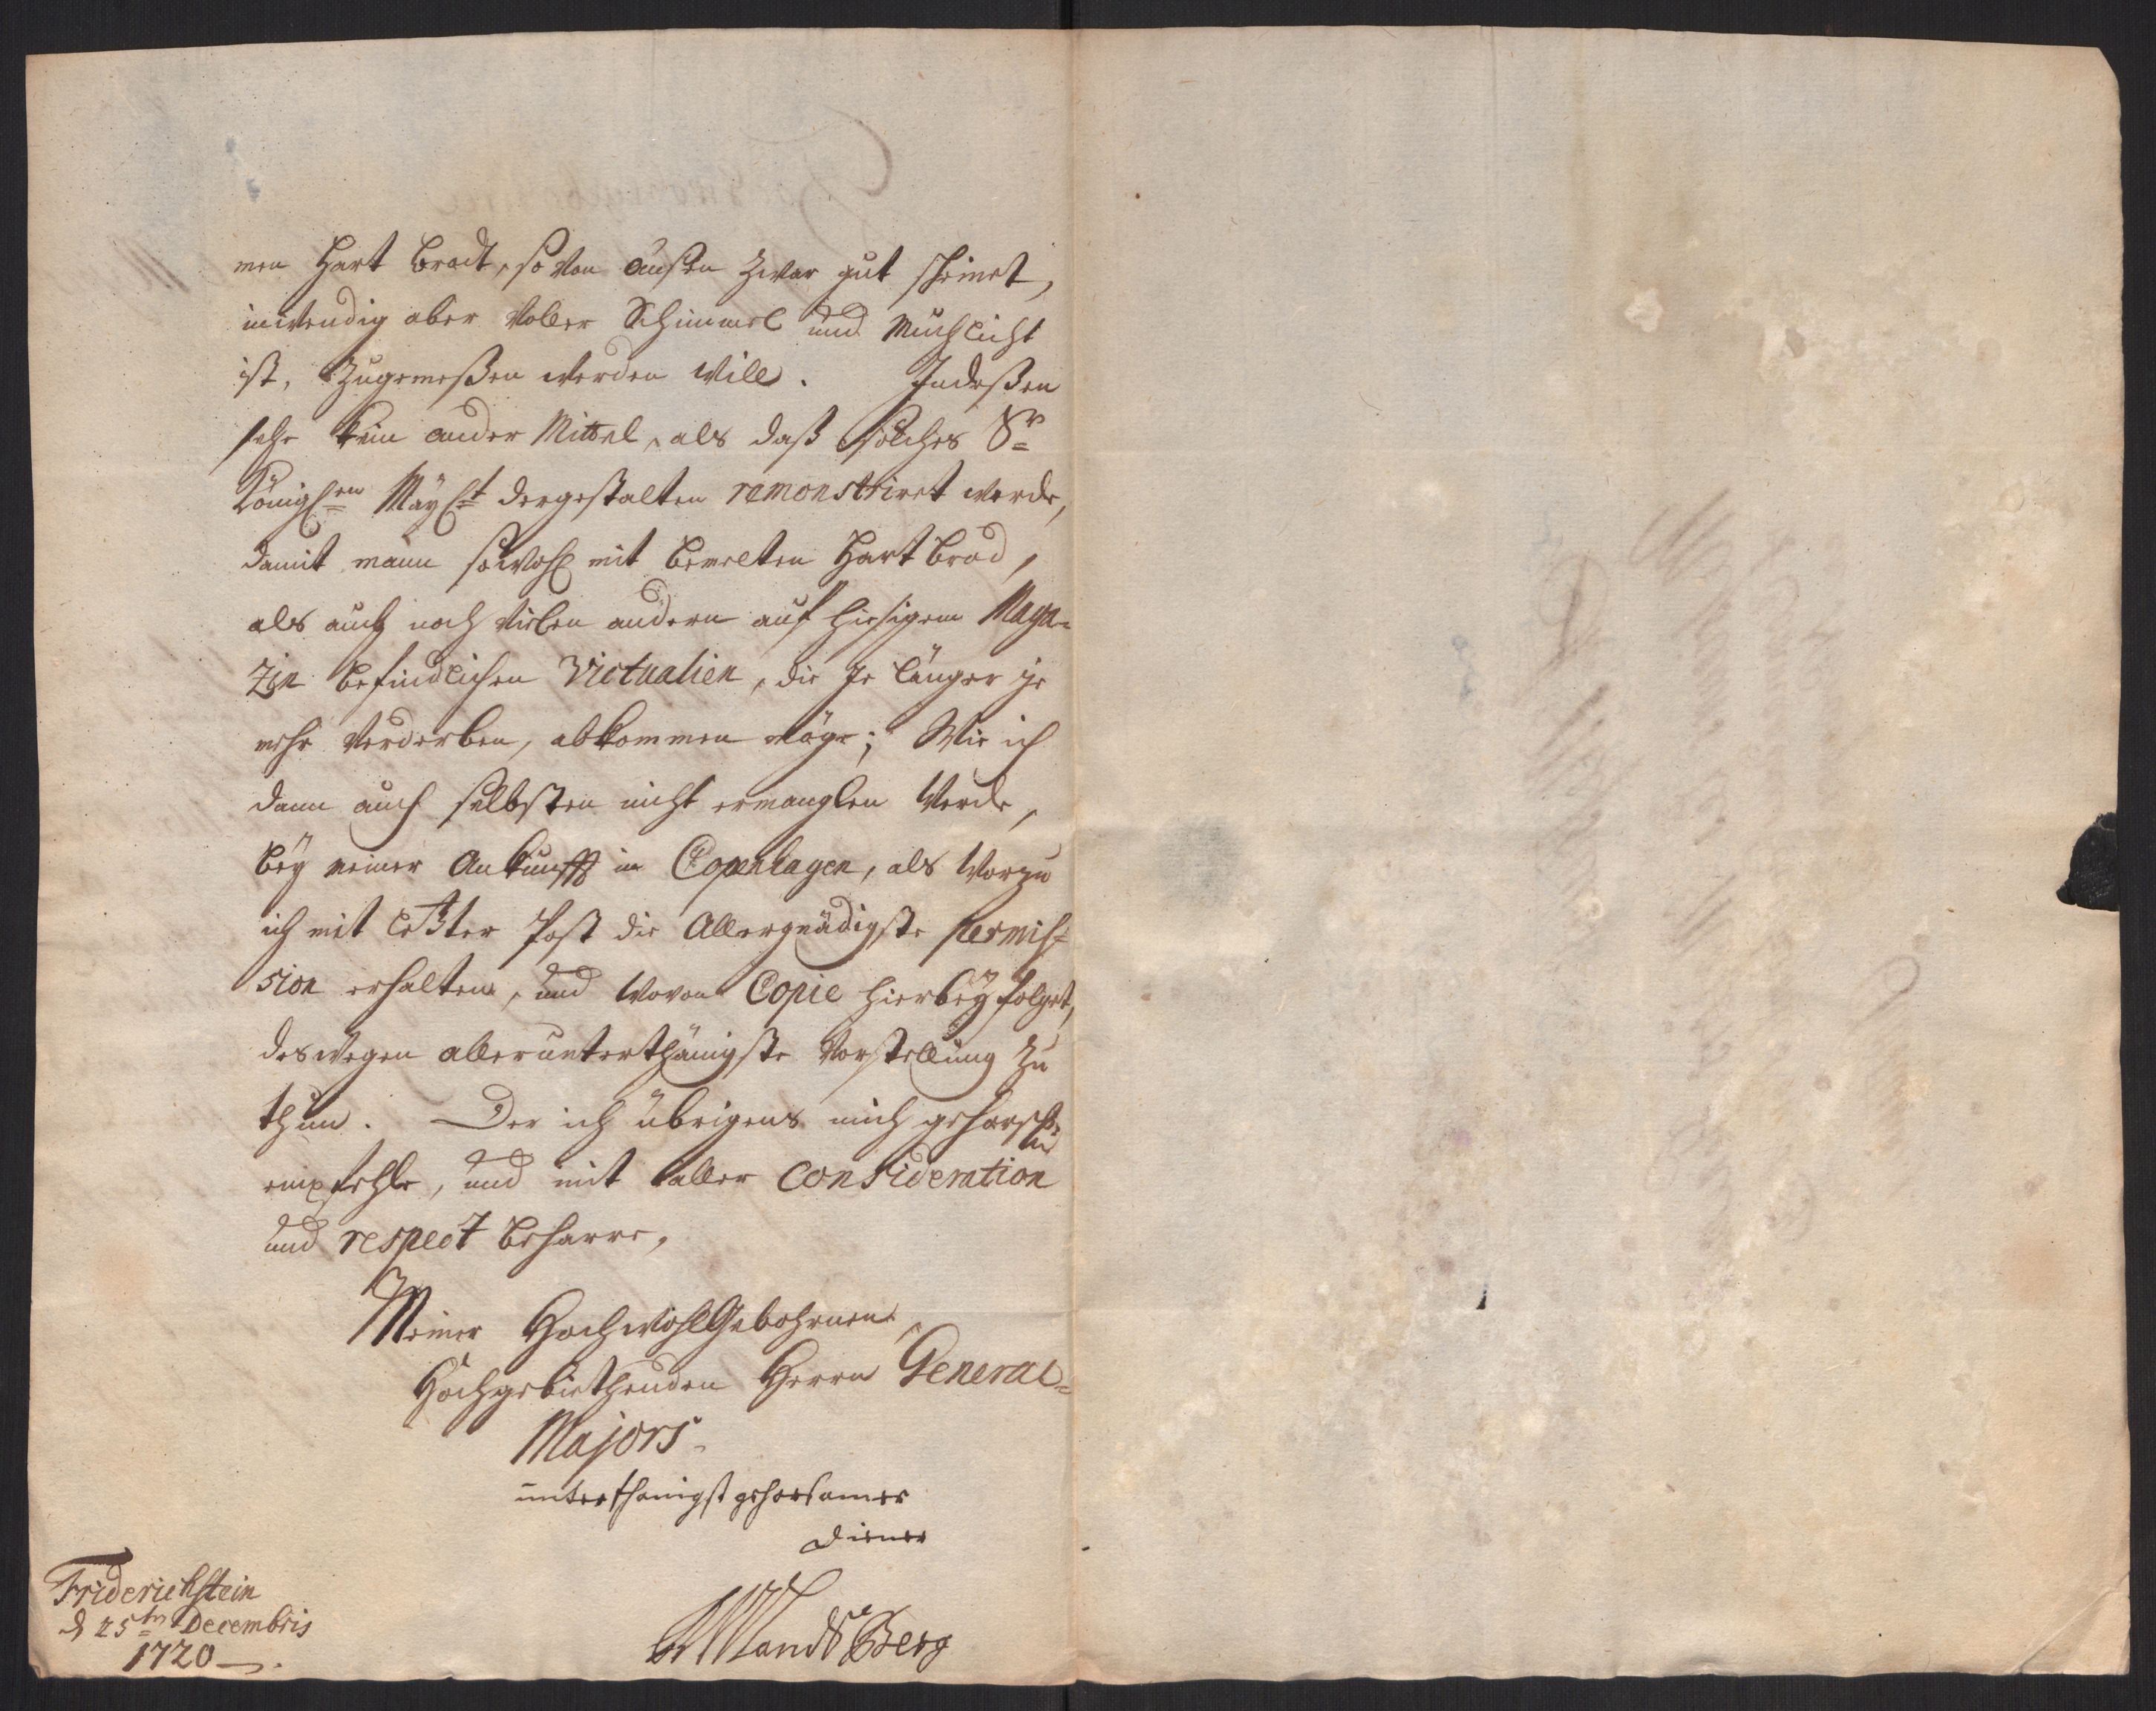 men Hart Brodt, so von außen zwar gut scheinet,
inwendig aber voller Schimmel und muchlicht
ist, zugemeßen werden will. Indeßen
sehe kein ander Mittel, als daß solches Sr
Königlen Mayst dergestalten remonstriret werde,
damit mann sowohl mit bemelten Hart Brod,
als auch noch vielen andern auf hiesigem Maga-
zin befindlichen Victualien, die je länger je
mehr verderben, abkommen möge; Wie ich
dann auch selbsten nicht ermanglen werde,
bey meiner Ankunfft in Copenhagen, als worzu
ich mit letzter Post die Allergnädigste permis-
sion erhalten, und wovon Copie hierbey folget,
deswegen allerunterthänigste Vorstellung zu
thun. Der ich übrigens mich gehorsst
empfehle, und mit aller consideration
und respect beharre,
Meiner HochwohlGebohrnen
Hochgebiethenden Herrn General-
Majors
unterthänigst gehorsamer
diener
Friderichstein
d 25ten Decembris
1720
Landsberg